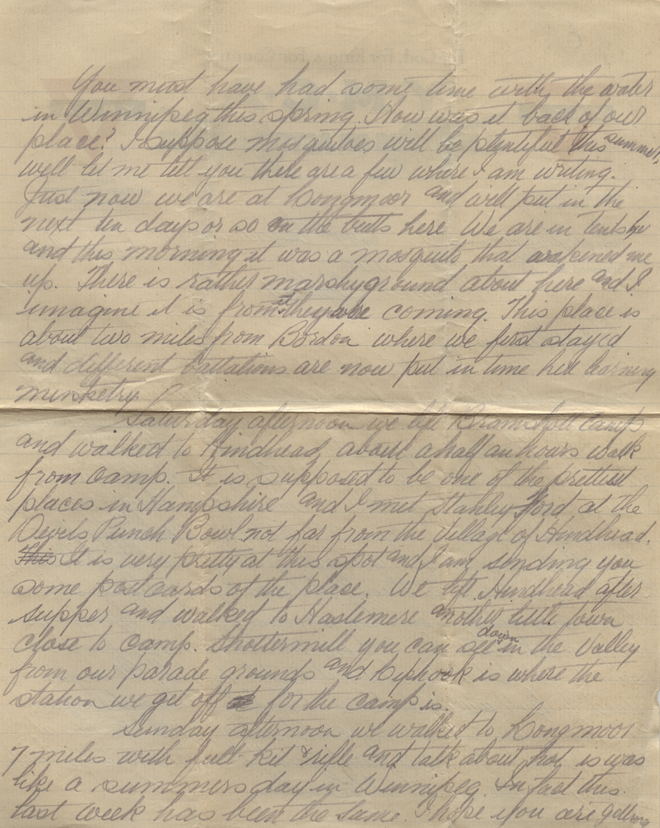 You must have had some time with the water
in Winnipeg this spring. How was it back of our
place? I suppose mosquitoes will be plentiful this summer,
well let me tell you there are a few where I am writing.
Just now we are at Longmoor and will put in the
next ten days or so on the butts here We are in tents by
and this morning it was a mosquito that awakened me
up. There is rather marshy ground about here and I
imagine it is from it they were coming. This place is
about two miles from Bordon where we first stayed
and different battalions are now put in time here learning
musketry.
Saturday afternoon we left Bramshott Camp
and walked to Hindhead, about a half an hours walk
from camp. It is supposed to be one of the prettiest
places in Hampshire and I met Stanley Ford at the
Devels Punch Bowl not far from the village of Hindhead.
This It is very pretty at this spot and I am sending you
some postcards of the place. We left Hindhead after
supper and walked to Haslemere another little town
close to camp. Shottermill you can see down in the Valley
from our parade grounds and Liphook is where the
station we get off for the camp is.
Sunday afternoon we walked to Longmoor
7 miles with full kit & rifle and talk about hot is was
like a summers day in Winnipeg. In fact this
last week has been the same. I hope you are getting